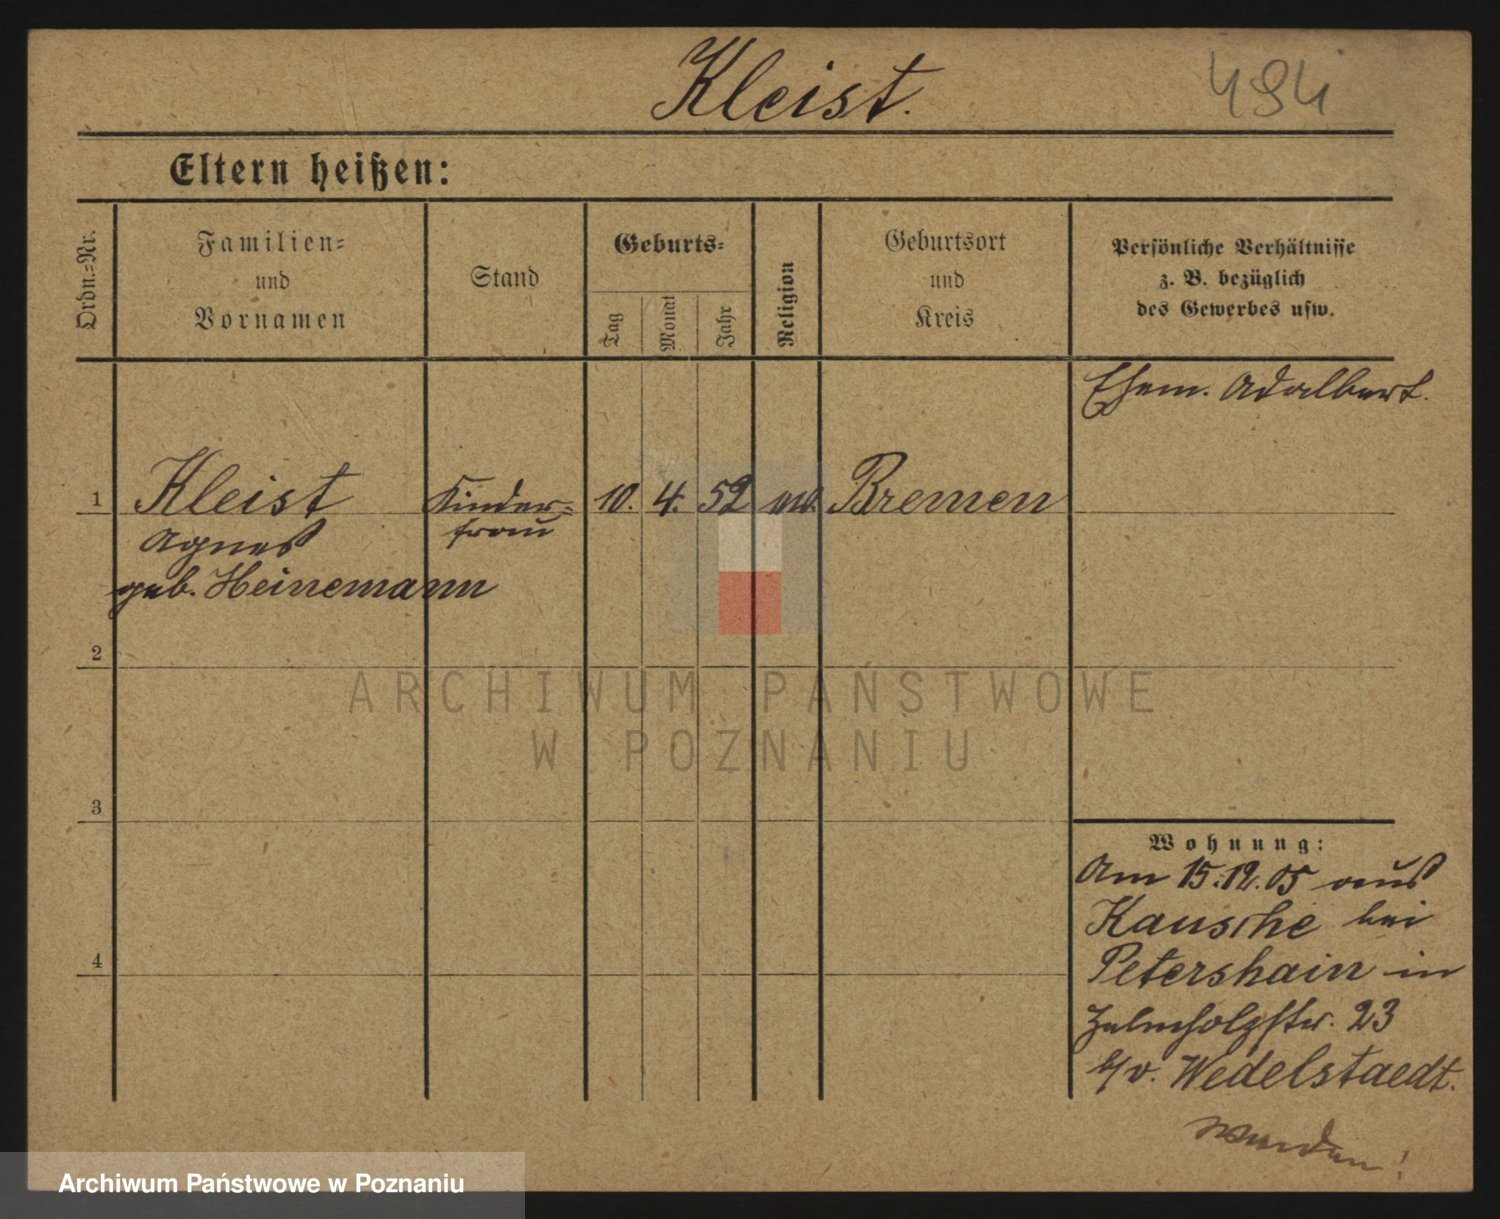 Kleist.
494
Eltern heißen:
Ordn.-Nr.
Familien-
und
Vornamen
Stand
Geburts-
Tag
Monat
Jahr
Religion
Geburtsort
und
Kreis
Persönliche Verhältnisse
z. B. bezüglich
des Gewerbes usw.
Ehem. Adalbert.
1 Kleist Kinder- 10. 4. 52 ev. Bremen
Agnes frau
geb. Heinemann
2
ARCHIWUM PAŃSTWOWE
W POZNANIU
3
Wohnung:
Am 15.12.05 aus
Kausche bei
Petershain in
23
4
b/v. Wedelstaedt.
wenden!
Archiwum Państwowe w Poznaniu